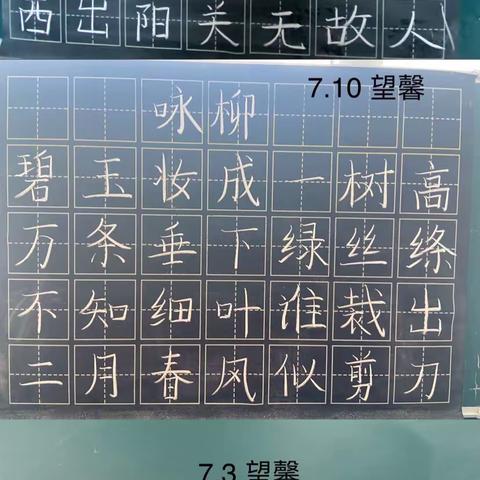 西出阳关无故人
7.10 望馨
咏柳
碧玉妆成一树高
万条垂下绿丝绦
不知细叶谁裁出
二月春风似剪刀
7.3 望馨